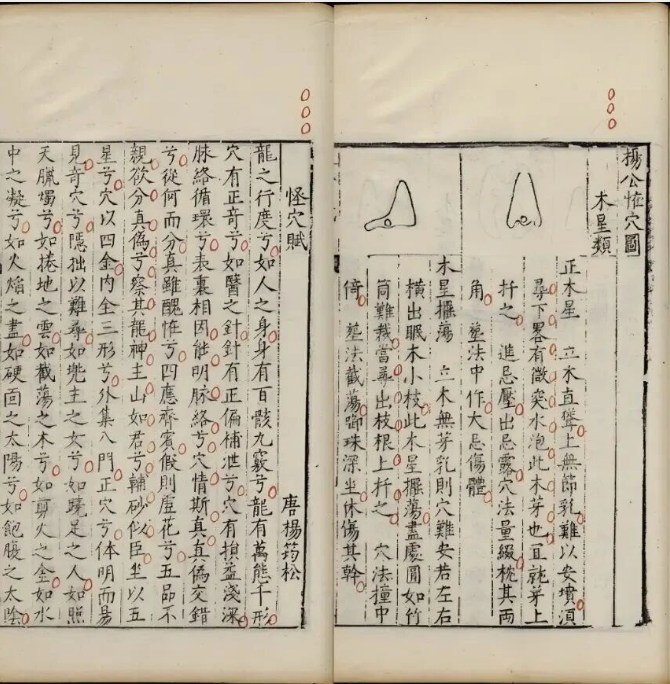 楊公恠穴圖
木星類
正木星 立木直聳上無節乳難以安墳須
尋下畧有微突水泡此木芽也宜就芽上
扦之 進忌壓出忌露穴法量綴枕其兩
角 塟法中作大忌傷體
木星擺蕩 立木無芽乳則穴難安若左右
橫出眠木小枝此木星擺蕩盡處圓如竹
筒難裁當尋出枝根上扦之 穴法撞中
倚 塟法截蕩啣珠深坐休傷其幹
怪穴賦 唐楊筠松
龍之行度兮如人之身身有百骸九竅兮龍有萬態千形
穴有正竒兮如醫之針針有正偏補泄兮穴有損益淺深
脉絡循環兮表裏相因能明脉絡兮穴情斯真真偽交錯
兮從何而分真雖醜恠兮四應齊賓假則虛花兮五品不
親欲分真偽兮察其龍神主山如君兮輔砂似臣坐以五
星兮穴以四金内全三形兮外集八門正穴兮体明而昜
見竒穴兮隱拙以難尋如兠主之女兮如蹺足之人如照
天臘燭兮如捲地之雲如截蕩之木兮如剪火之金如水
中之凝兮如火焰之盡如硬面之太陽兮如飽腹之太陰